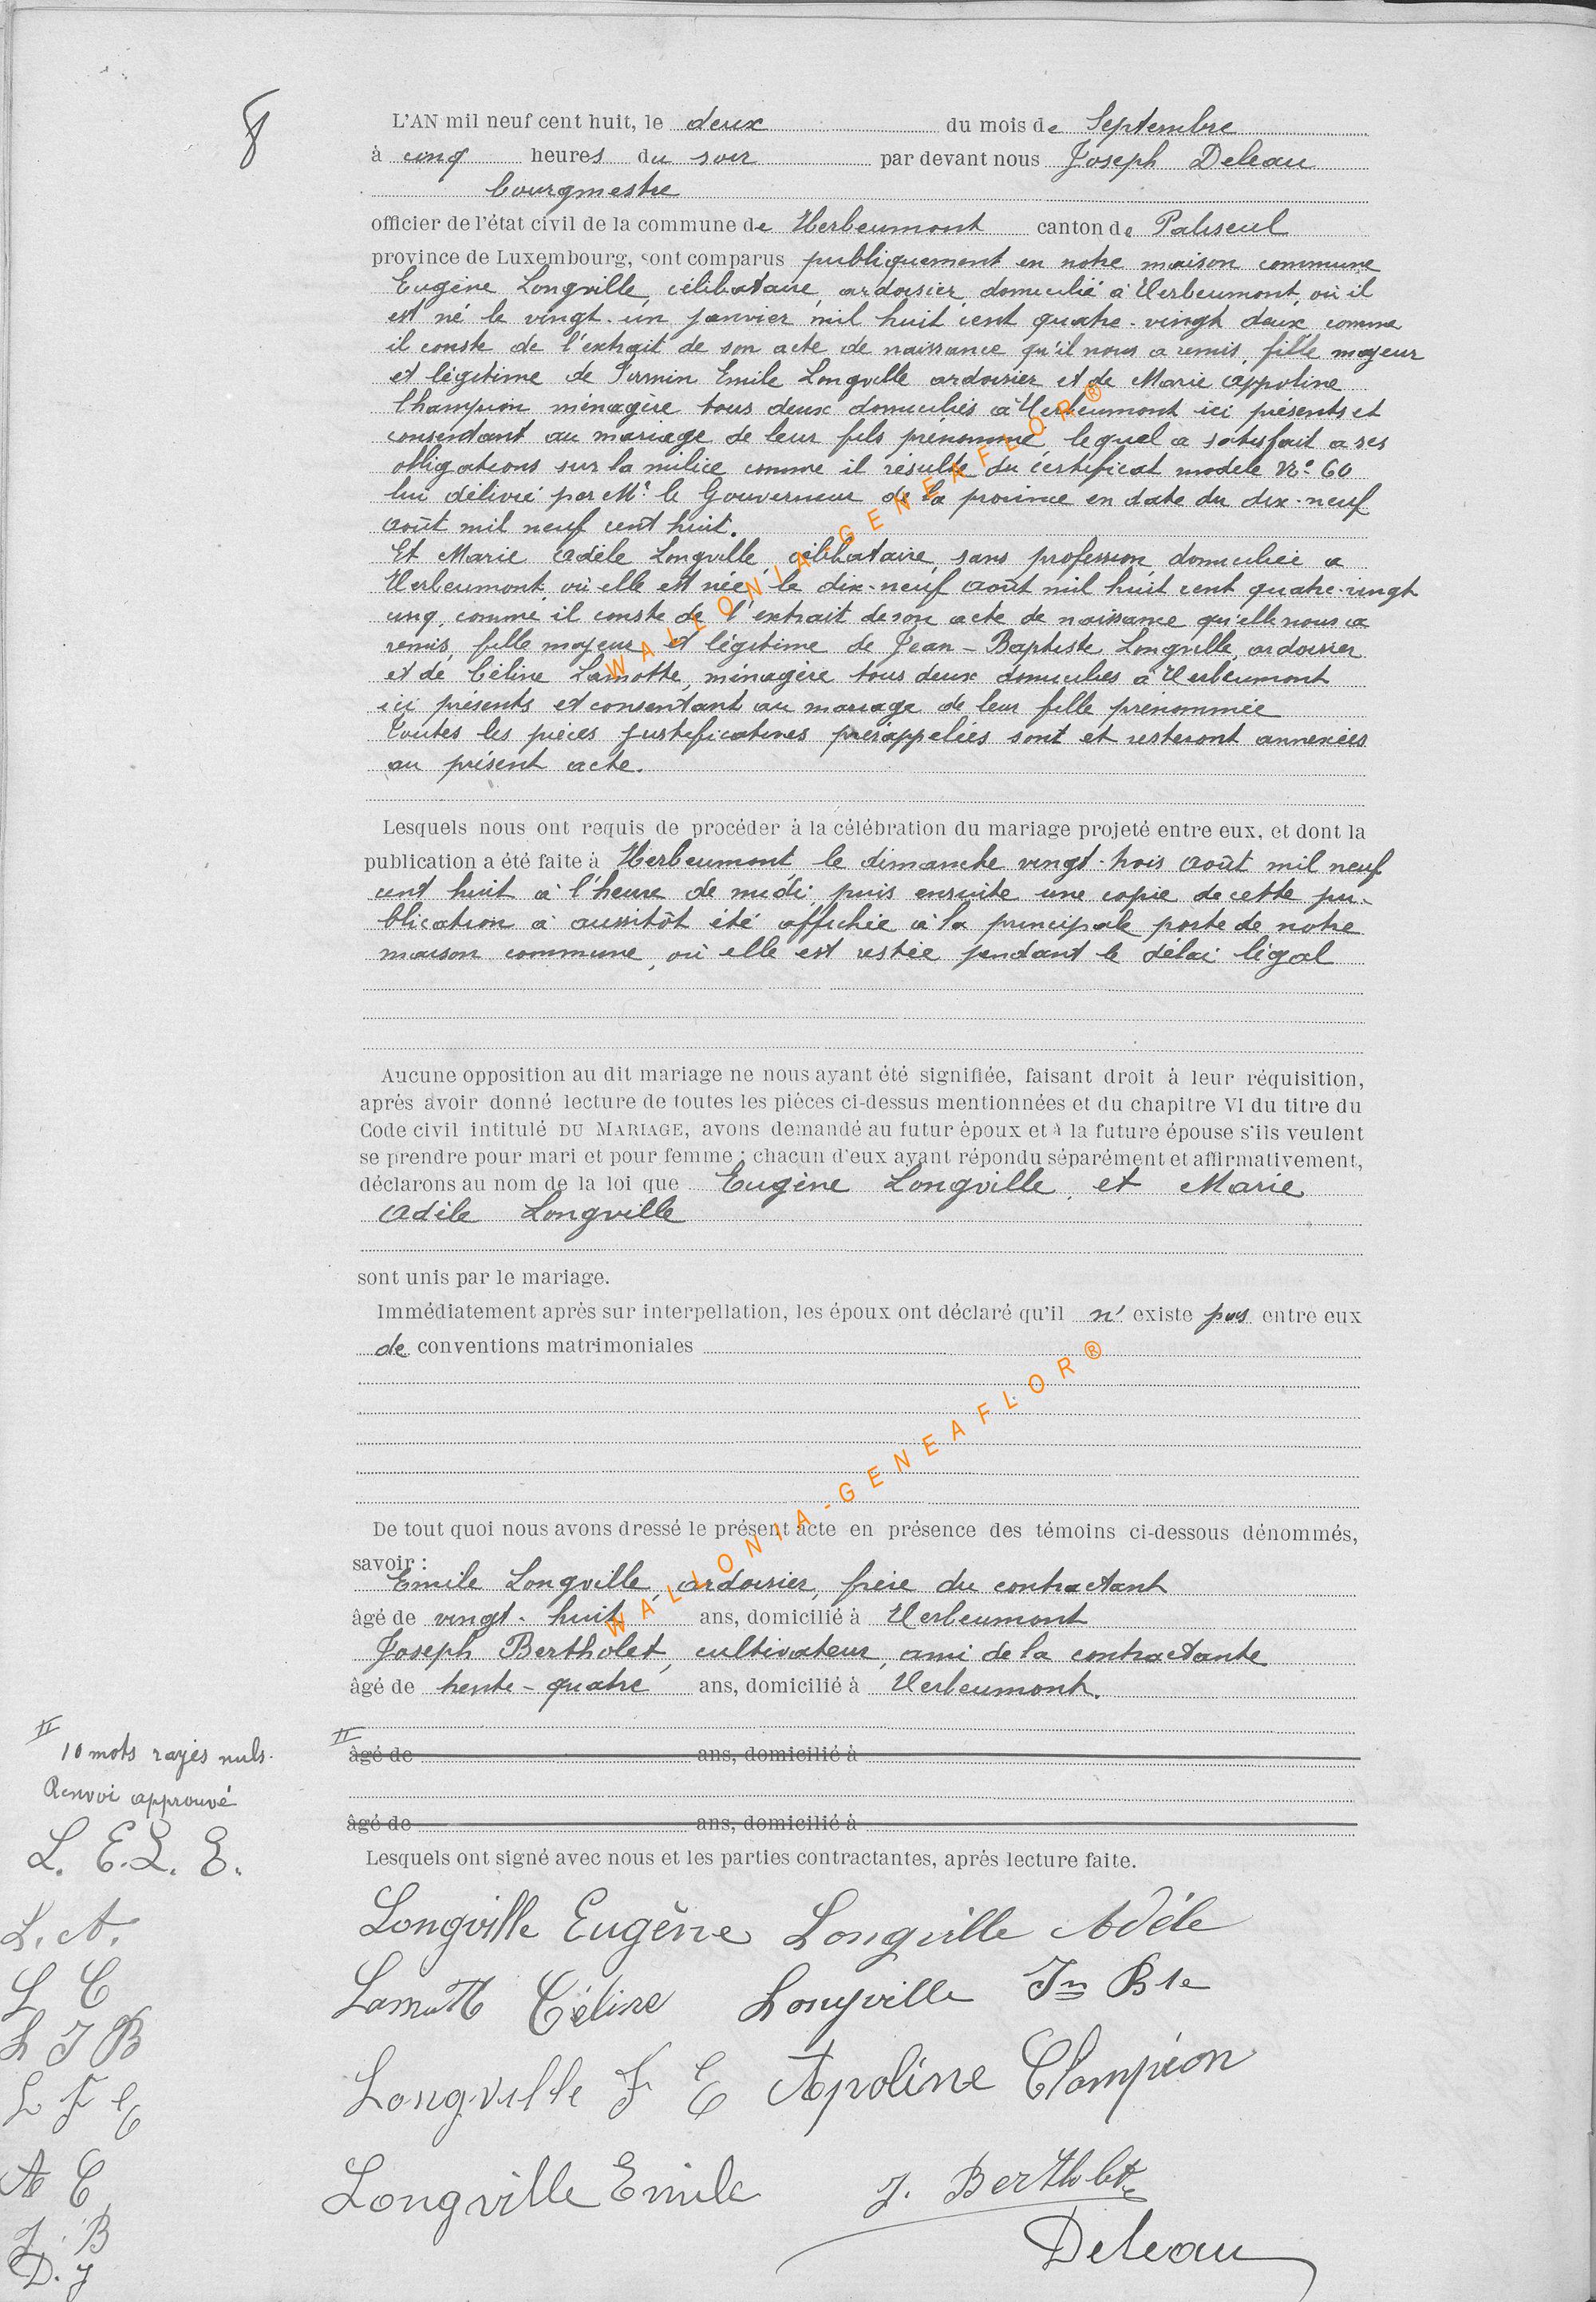 8
L'AN mil neuf cent huit, le deux du mois de Septembre
à cinq heures du soir par devant nous Joseph Deleau
bourgmestre
officier de l'état civil de la commune de Herbeumont canton de Paliseul
province de Luxembourg, sont comparus publiquement en notre maison commune
Eugène Longville, célibataire, ardoisier, domicilié à Herbeumont, où il
est né le vingt-un janvier mil huit cent quatre-vingt deux, comme
il conste de l'extrait de son acte de naissance qu'il nous a remis, fille majeur
et légitime de Firmin Emile Longville ardoisier et de Marie Appoline
Champion ménagère tous deux domiciliés à Herbeumont ici présents et
consentant au mariage de leur fils prénommé, lequel a satisfait a ses
obligations sur la milice comme il résulte du certificat modèle No 60
lui délivré par Mr le Gouverneur de la province en date du dix-neuf
août mil neuf cent huit.
Et Marie Adèle Longville, célibataire, sans profession, domiciliée a
Herbeumont, où elle est née, le dix-neuf août mil huit cent quatre-vingt
cinq, comme il conste de l'extrait de son acte de naissance qu'elle nous a
remis, fille majeur et légitime de Jean-Baptiste Longville, ardoisier
et de Céline Lamotte, ménagère tous deux domiciliés à Herbeumont
ici présents et consentant au mariage de leur fille prénommée
Toutes les pièces justificatives prérappelées sont et resteront annexées
au présent acte.
Lesquels nous ont requis de procéder à la célébration du mariage projeté entre eux, et dont la
publication a été faite à Herbeumont le dimanche vingt-trois août mil neuf
cent huit à l'heure de midi; puis ensuite une copie de cette pu-
blication a aussitôt été affichée à la principale porte de notre
maison commune, où elle est restée pendant le délai légal
Aucune opposition au dit mariage ne nous ayant été signifiée, faisant droit à leur réquisition,
après avoir donné lecture de toutes les pièces ci-dessus mentionnées et du chapitre VI du titre du
Code civil intitulé DU MARIAGE, avons demandé au futur époux et à la future épouse s'ils veulent
se prendre pour mari et pour femme; chacun d'eux ayant répondu séparément et affirmativement,
déclarons au nom de la loi que Eugène Longville et Marie
Adèle Longville
sont unis par le mariage.
Immédiatement après sur interpellation, les époux ont déclaré qu'il n'existe pas entre eux
de conventions matrimoniales
De tout quoi nous avons dressé le présent acte en présence des témoins ci-dessous dénommés,
savoir :
Emile Longville, ardoisier, frère du contractant
âgé de vingt-huit ans, domicilié à Herbeumont
Joseph Bertholet, cultivateur, ami de la contractante
âgé de trente-quatre ans, domicilié à Herbeumont.
II
âgé de ans, domicilié à
âgé de ans, domicilié à
Lesquels ont signé avec nous et les parties contractantes, après lecture faite.
Longville Eugène Longville Adèle
Lamott Céline Longville Jn Bte
Longville F E Apoline Champion
Longville Emile J. Bertholet
Deleau
II
10 mots rayés nuls.
Renvoi approuvé
L. E. L. E.
L. A.
L C
L J B
L F E
A C
J. B
D. J
WALLONIA-GENEAFLOR®
WALLONIA-GENEAFLOR®